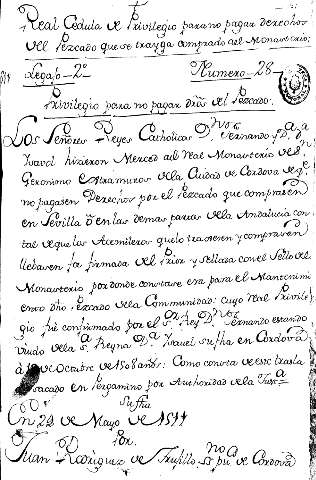 Real Cedula de Privilegio para no pagar derechos
del Pezcado que se trayga comprado al Monasterio;
Legajo 2º Numero 28
Privilegio para no pagar dros del Pezcado.
Los Señores Reyes Catholicos Dn Fernando y Dª
Isavel hizieron Merced al Real Monasterio de Sn
Geronimo Extramuros de la Ciudad de Cordova de qe
no pagasen Derechos por el Pezcado que comprasen
en Sevilla ô en las demas partes de la Andalucia con
tal de que los Acemileros que lo traxeren y compraren
llebaren fee firmada del Prior y Sellada con el Sello del
Monasterio por donde constare era para el Mantenimi
ento dho Pezcado de la Comunidad: Cuyo Real Privile
gio fué confirmado por el Sr Rey Dn Fernando estando
viudo de la Sª Reyna Dª Isavel su fha en Cordova
à de Octubre de 1508 años: Como consta de este trasla
sacado en Pergamino por Authoridad de la Justª
Su fha
En 22 de Mayo de 1511
Por
Juan Rodriguez de Trujillo Ssno pucº de Cordova